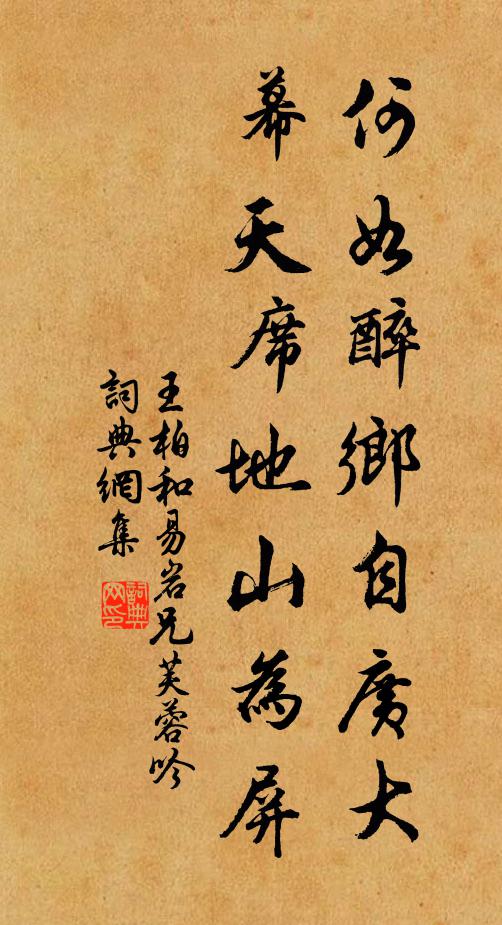 何如醉鄉自廣大
幕天席地山為屏
王柏和易岩兄芙蓉吟
詞典網集
詞典
网印